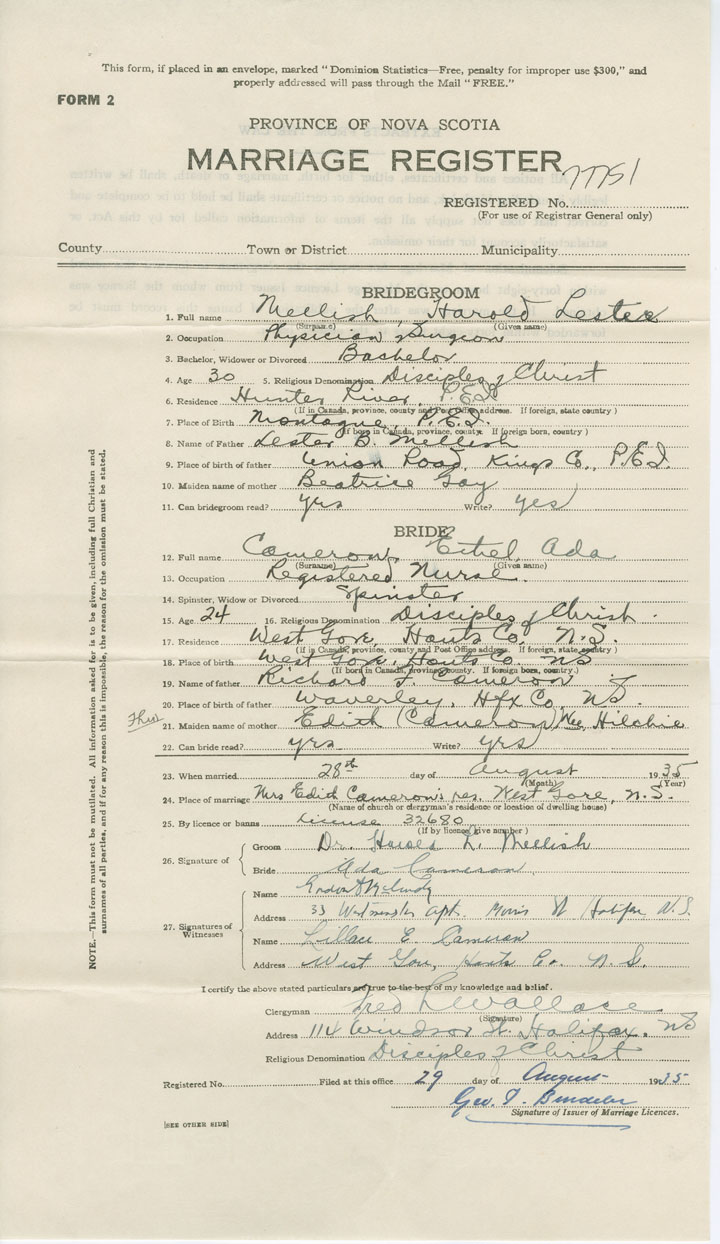 This form, if placed in an envelope, marked "Dominion Statistics—Free, penalty for improper use $300," and
properly addressed will pass through the Mail "FREE."
FORM 2
PROVINCE OF NOVA SCOTIA
MARRIAGE REGISTER
7751
REGISTERED No.
(For use of Registrar General only)
County Town or District Municipality
BRIDEGROOM
1. Full name Mellish, Harold Lester
(Surname) (Given name)
2. Occupation Physician & Surgeon
3. Bachelor, Widower or Divorced Bachelor
4. Age 30 5. Religious Denomination Disciples of Christ
6. Residence Hunter River, P.E.I.
(If in Canada, province, county and Post Office address. If foreign, state country)
7. Place of Birth Montague, P.E.I.
(If born in Canada, province, county. If foreign born, country)
8. Name of Father Lester B. Mellish
9. Place of birth of father Union Road, Kings Co., P.E.I.
10. Maiden name of mother Beatrice Gay
11. Can bridegroom read? yes Write? yes
BRIDE
12. Full name Cameron, Ethel Ada
(Surname) (Given name)
13. Occupation Registered Nurse
14. Spinster, Widow or Divorced Spinster
15. Age 24 16. Religious Denomination Disciples of Christ
17. Residence West Gore, Hants Co. N.S.
(If in Canada, province, county and Post Office address. If foreign, state country)
18. Place of birth West Gore, Hants Co. NS
(If born in Canada, province, county. If foreign born, country.)
19. Name of father Richard F. Cameron
20. Place of birth of father Waverley, Hfx Co, NS
21. Maiden name of mother Edith (Cameron) Nee Hilchie
22. Can bride read? yes Write? yes
23. When married 28th day of August 1935
(Month) (Year)
24. Place of marriage Mrs Edith Cameron's res. West Gore, N.S.
(Name of church or clergyman's residence or location of dwelling house)
25. By licence or banns License 32680
(If by licence give number)
26. Signature of Groom Dr. Harold L. Mellish
Bride Ada Cameron
27. Signatures of Witnesses
Name
Address 33 Westminster Apt. Morris St Halifax N.S.
Name E. Cameron
Address West Gore, Hants Co. N.S.
I certify the above stated particulars are true to the best of my knowledge and belief.
Clergyman Fred L Wallace
(Signature)
Address 114 Windsor St. Halifax, NS
Religious Denomination Disciples of Christ
Registered No. Filed at this office 29 day of August 1935
Geo.
Signature of Issuer of Marriage Licences.
[SEE OTHER SIDE]
NOTE.—This form must not be mutilated. All information asked for is to be given, including full Christian and
surnames of all parties, and if for any reason this is impossible, the reason for the omission must be stated.